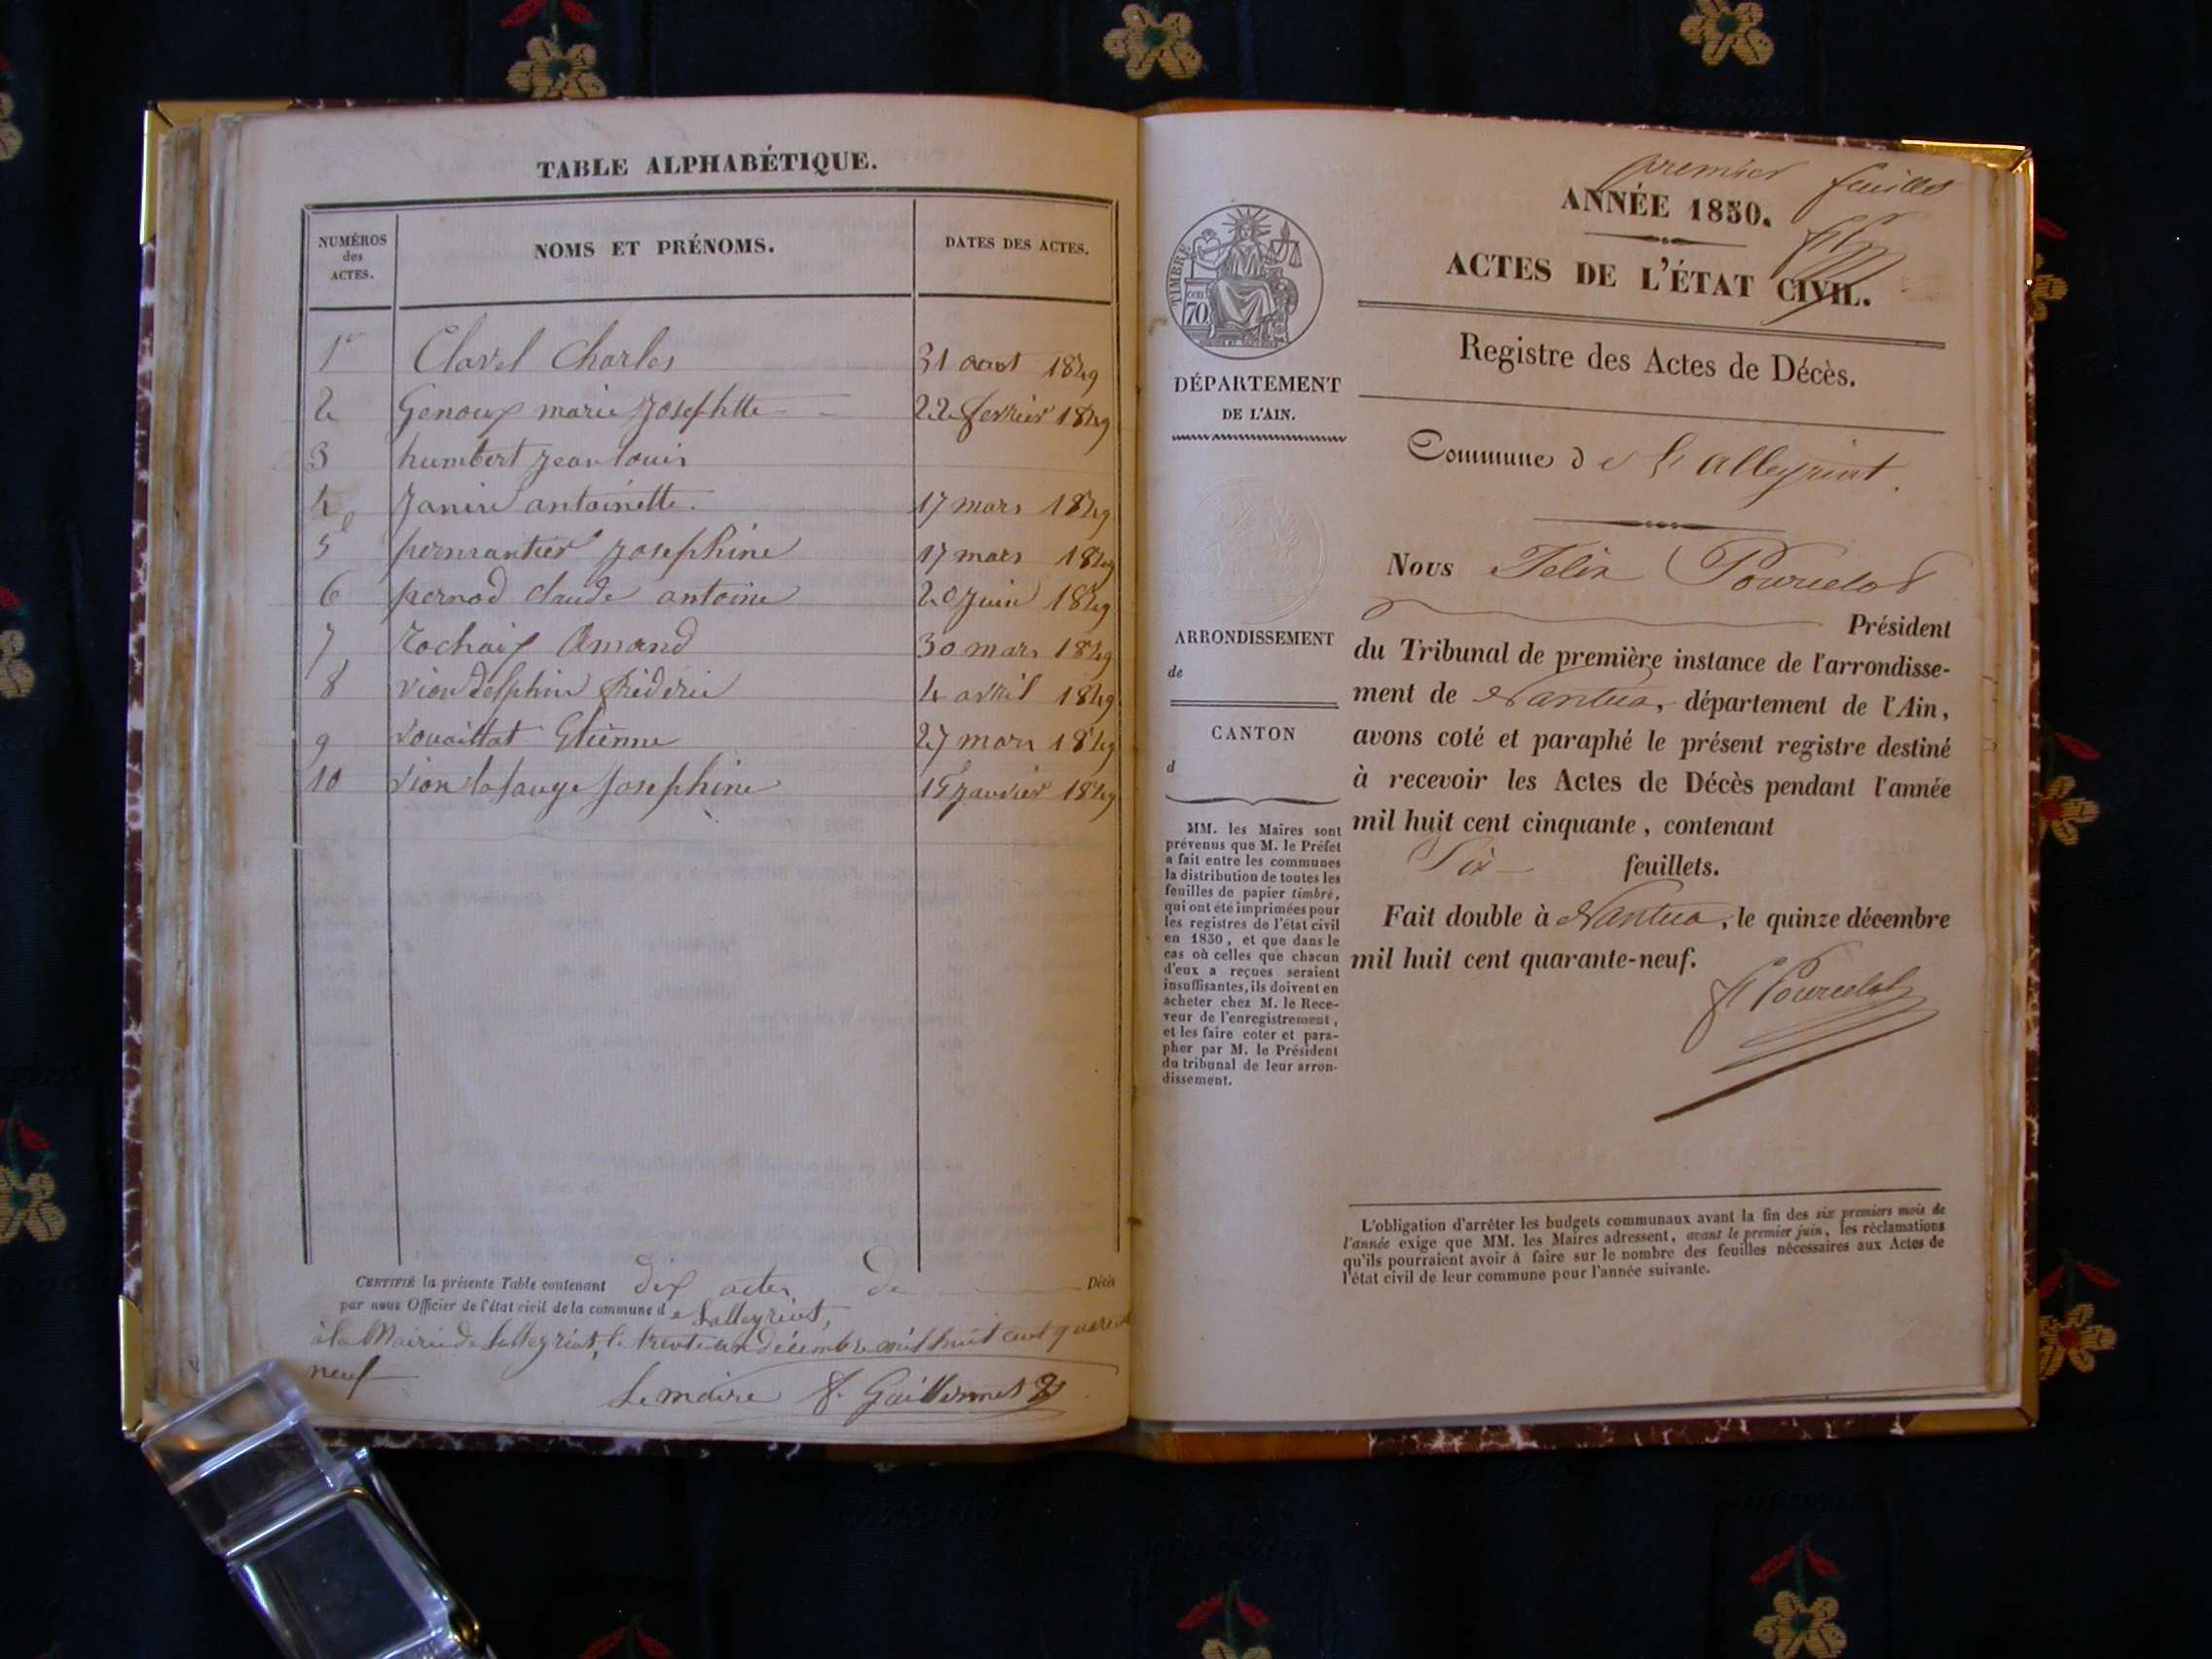 TABLE ALPHABÉTIQUE.
NUMÉROS des ACTES. NOMS ET PRÉNOMS. DATES DES ACTES.
1er Clavel Charles 31 aout 1849
2 Genoux marie Josephtte 22 fevrier 1849
3 humbert jean louis
4 Janin antoinette. 17 mars 1849
5 Josephine 17 mars 1849
6 pernod claude antoine 20 juin 1849
7 Rochaix Amand 30 mars 1849
8 vion delphin 4 avril 1849
9 Etienne 27 mars 1849
10 vion Josephine 15 janvier 1849
CERTIFIÉ la présente Table contenant dix actes de Décès
par nous Officier de l'état civil de la commune de Lalleyriat,
à la Mairie de Lalleyriat, le trente un décembre mil huit cent quarante
neuf
Le maire
premier feuillet
ANNÉE 1850.
ACTES DE L'ÉTAT CIVIL.
Registre des Actes de Décès.
TIMBRE
70
DÉPARTEMENT
DE L'AIN.
ARRONDISSEMENT
de
CANTON
d
MM. les Maires sont
prévenus que M. le Préfet
a fait entre les communes
la distribution de toutes les
feuilles de papier timbré,
qui ont été imprimées pour
les registres de l'état civil
en 1850, et que dans le
cas où celles que chacun
d'eux a reçues seraient
insuffisantes, ils doivent en
acheter chez M. le Rece-
veur de l'enregistrement,
et les faire coter et para-
pher par M. le Président
du tribunal de leur arron-
dissement.
Commune de Lalleyriat.
Nous Felix Pourcelot
Président
du Tribunal de première instance de l'arrondisse-
ment de Nantua, département de l'Ain,
avons coté et paraphé le présent registre destiné
à recevoir les Actes de Décès pendant l'année
mil huit cent cinquante, contenant
Six feuillets.
Fait double à Nantua, le quinze décembre
mil huit cent quarante-neuf.
F Pourcelot
L'obligation d'arrêter les budgets communaux avant la fin des six premiers mois de
l'année exige que MM. les Maires adressent, avant le premier juin, les réclamations
qu'ils pourraient avoir à faire sur le nombre des feuilles nécessaires aux Actes de
l'état civil de leur commune pour l'année suivante.